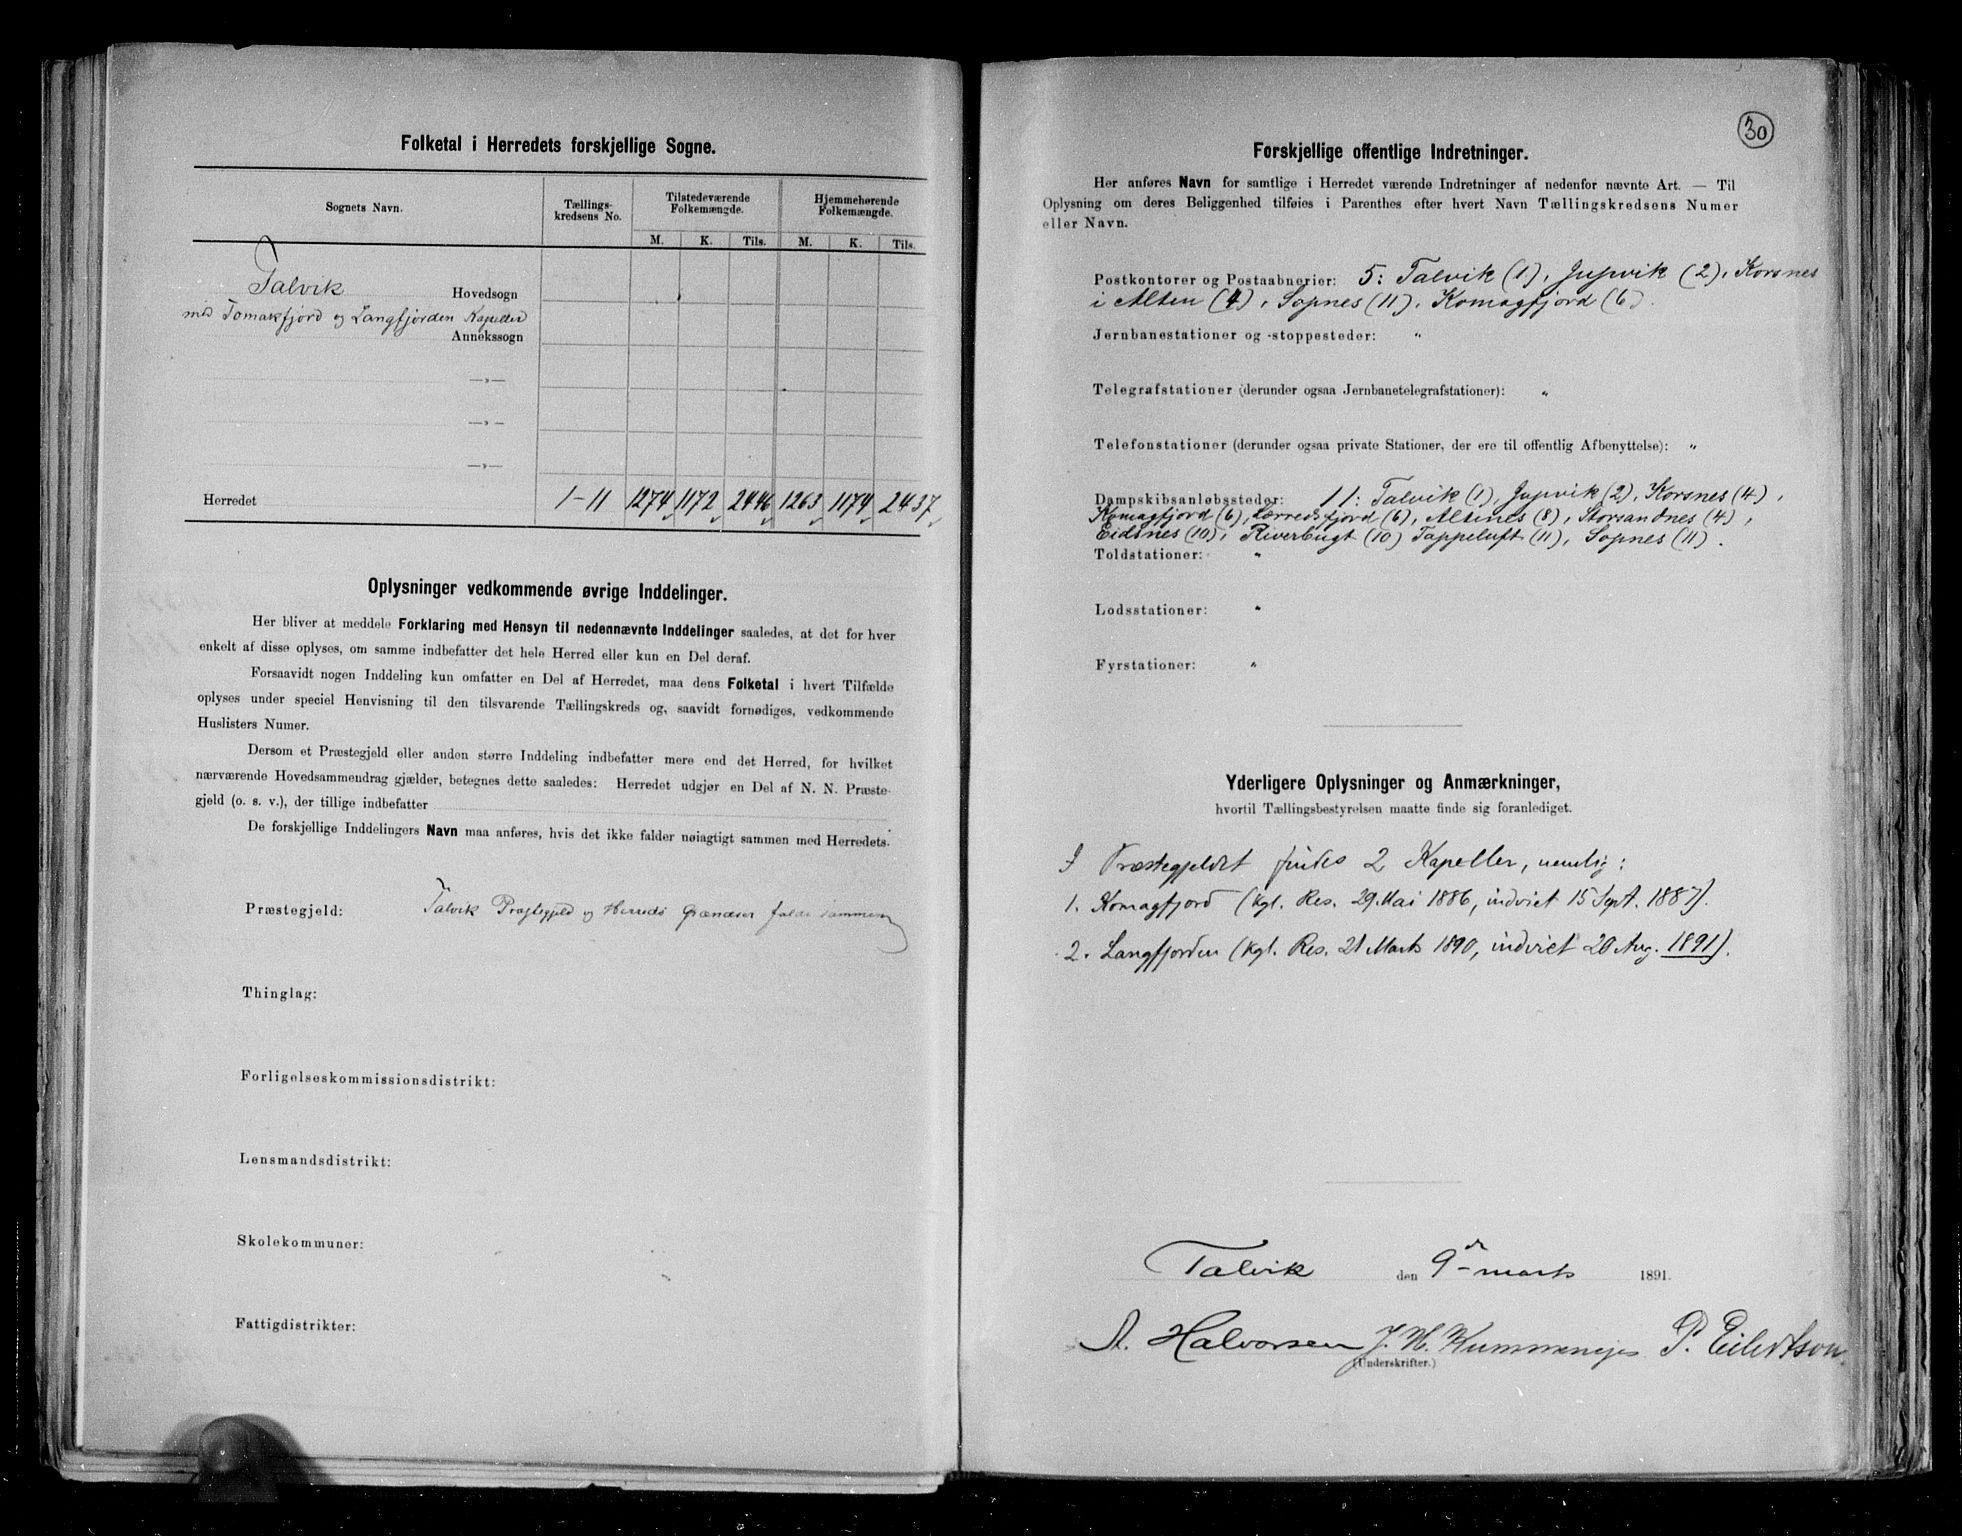 Folketal i Herredets forskjellige Sogne.
Sognets Navn.
Tællings-
kredsens No.
Tilstedeværende
Folkemængde.
Hjemmehørende
Folkemængde.
M. K. Tils. M. K. Tils.
Talvik Hovedsogn
med Komakfjord og Langfjorden Kapeller
Annekssogn
—»—
—»—
—»—
Herredet 1-11 1274 1172 2446 1263 1174 2437
Oplysninger vedkommende øvrige Inddelinger.
Her bliver at meddele Forklaring med Hensyn til nedennævnte Inddelinger saaledes, at det for hver
enkelt af disse oplyses, om samme indbefatter det hele Herred eller kun en Del deraf.
Forsaavidt nogen Inddeling kun omfatter en Del af Herredet, maa dens Folketal i hvert Tilfælde
oplyses under speciel Henvisning til den tilsvarende Tællingskreds og, saavidt fornødiges, vedkommende
Huslisters Numer.
Dersom et Præstegjeld eller anden større Inddeling indbefatter mere end det Herred, for hvilket
nærværende Hovedsammendrag gjælder, betegnes dette saaledes: Herredet udgjør en Del af N. N. Præste-
gjeld (o. s. v.), der tillige indbefatter
De forskjellige Inddelingers Navn maa anføres, hvis det ikke falder nøiagtigt sammen med Herredets.
Præstegjeld: Talvik Præstegjeld og Herreds Grændser falde sammen
Thinglag:
Forligelseskommissionsdistrikt:
Lensmandsdistrikt:
Skolekommuner:
Fattigdistrikter:
30
Forskjellige offentlige Indretninger.
Her anføres Navn for samtlige i Herredet værende Indretninger af nedenfor nævnte Art. — Til
Oplysning om deres Beliggenhed tilføies i Parenthes efter hvert Navn Tællingskredsens Numer
eller Navn.
Postkontorer og Postaabnerier: 5: Talvik (1), Jupvik (2), Korsnes
i Alten (4), Sopnes (11), Komagfjord (6).
Jernbanestationer og -stoppesteder: "
Telegrafstationer (derunder ogsaa Jernbanetelegrafstationer): "
Telefonstationer (derunder ogsaa private Stationer, der ere til offentlig Afbenyttelse): "
Dampskibsanløbssteder: 11: Talvik (1), Jupvik (2), Korsnes (4),
Komagfjord (6), Lerredsfjord (6), Altnes (8), Storsandnes (4),
Eidsnes (10), Riverbugt (10) Tappeluft (11), Sopnes (11).
Toldstationer: "
Lodsstationer: "
Fyrstationer: "
Yderligere Oplysninger og Anmærkninger,
hvortil Tællingsbestyrelsen maatte finde sig foranlediget.
I Præstegjeldet findes 2 Kapeller, nemlig:
1. Komagfjord (kgl. Res. 29. Mai 1886, indviet 15 Sept. 1887).
2. Langfjorden (kgl. Res. 21 Marts 1890, indviet 20 Aug. 1891).
Talvik den 9de marts 1891.
A. Halvorsen J. H. P. Eilertsen
(Underskrifter.)